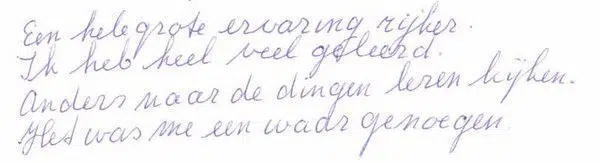 Een hele grote ervaring rijker.
Ik heb heel veel geleerd.
Anders naar de dingen leren kijken.
Het was me een waar genoegen.